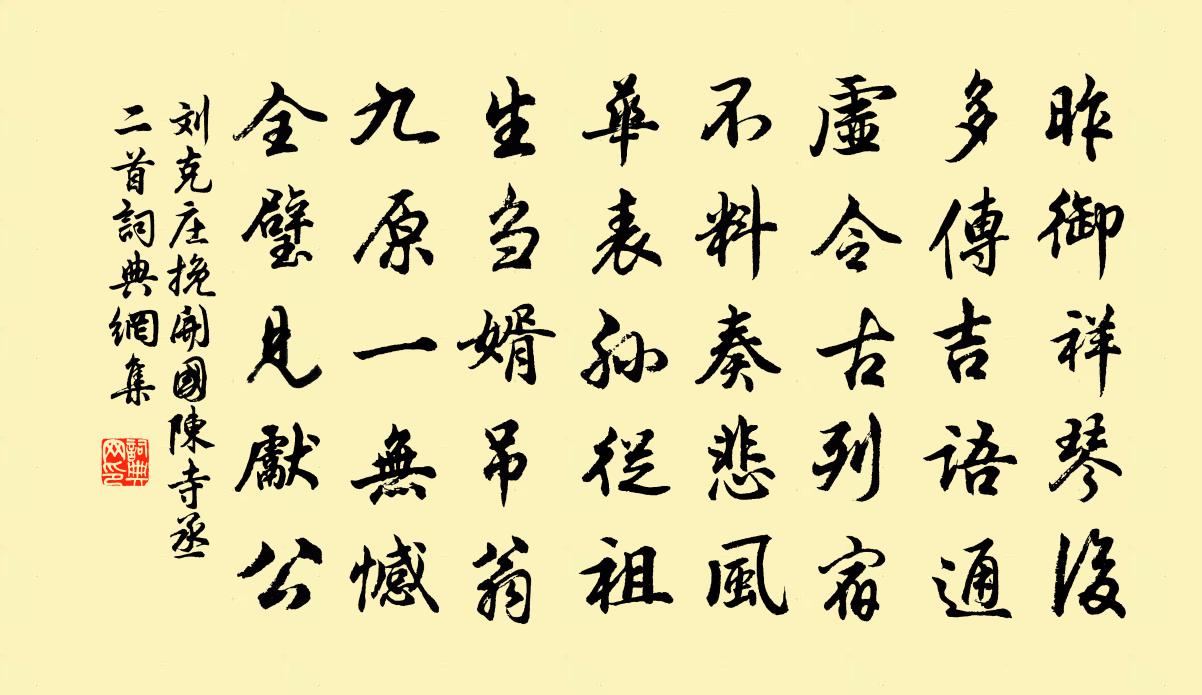 昨御祥琴後
多傳吉語通
虛令古列宿
不料奏悲風
華表孫從祖
生芻婿吊翁
九原一無憾
全璧見獻公
刘克庄挽開國陳寺丞
二首詞典網集
詞典网印